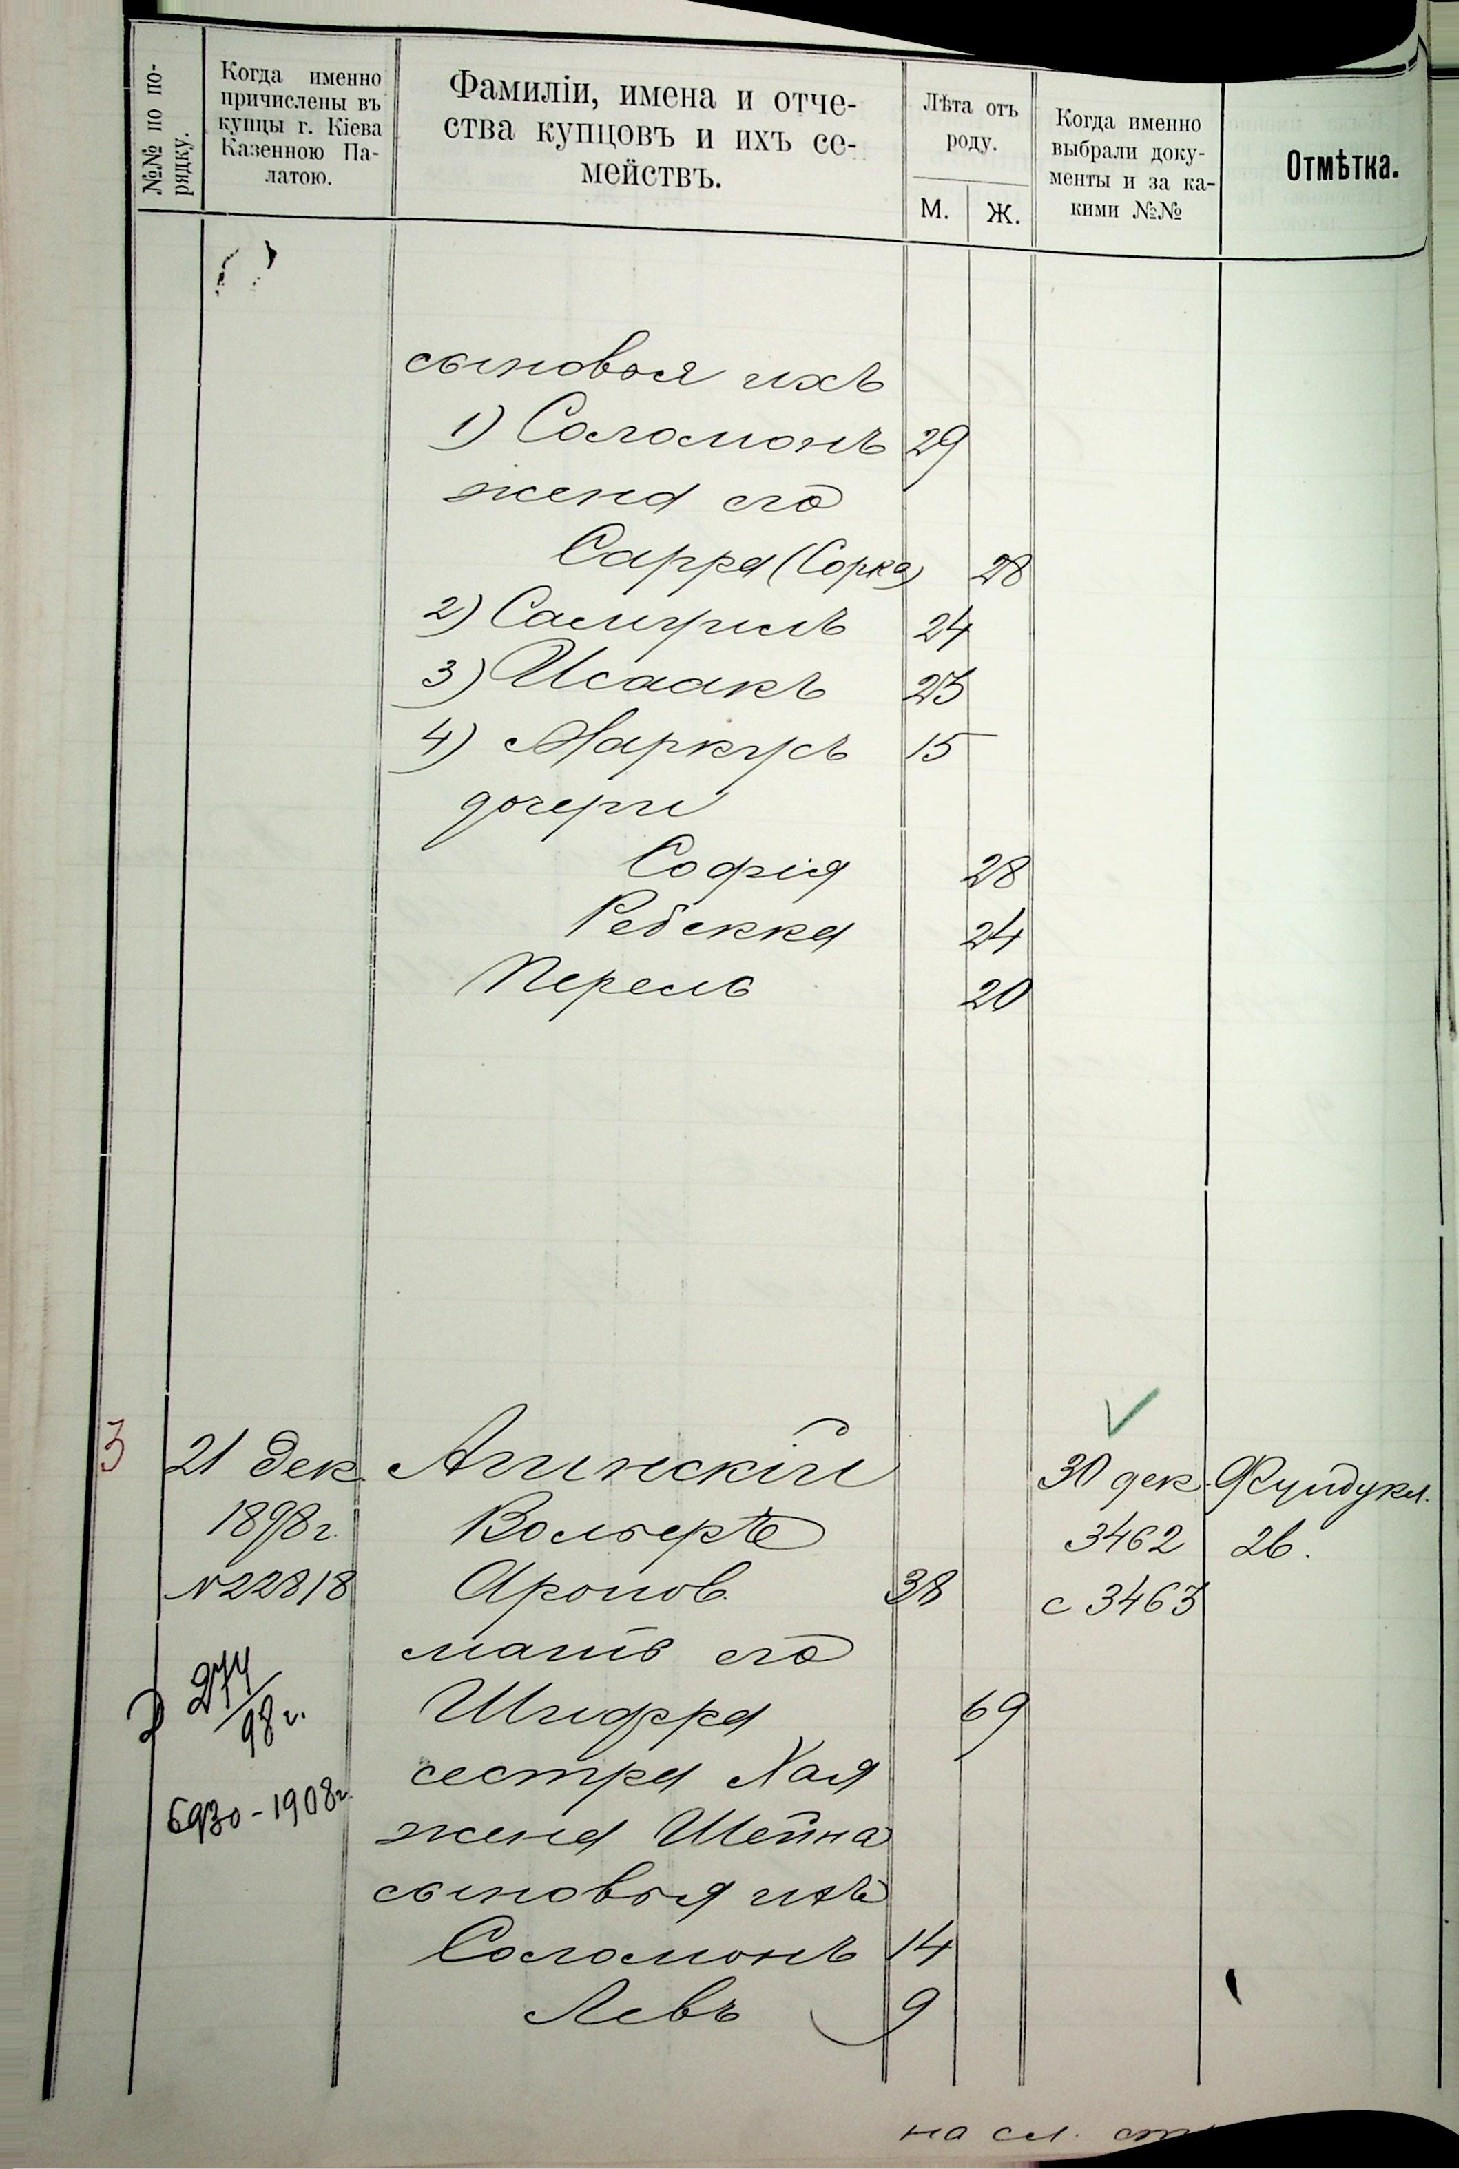 №№ по по-
рядку.
Когда именно
причислены въ
купцы г. Кіева
Казенною Па-
латою.
Фамиліи, имена и отче-
ства купцовъ и ихъ се-
мействъ.
Лѣта отъ
роду.
М. Ж.
Когда именно
выбрали доку-
менты и за ка-
кими №№
Отмѣтка.
сыновья ихъ
1) Соломонъ 29
жена его
Сарра (Сорка) 28
2) Самуилъ 24
3) Исаакъ 23
4) Маркусъ 15
дочери
Софія 28
Ребекка 24
Перель 20
3 21 Дек. Агинскій 30 дек. Фундукл.
1898 г. Вольфъ 3462 26.
№ 22818 Аронов. 38 с 3463
мать его
274/98 г. Шифра 69
сестра Хая
6930-1908 г. жена Шейна
сыновья ихъ
Соломонъ 14
Левъ 9
на сл.